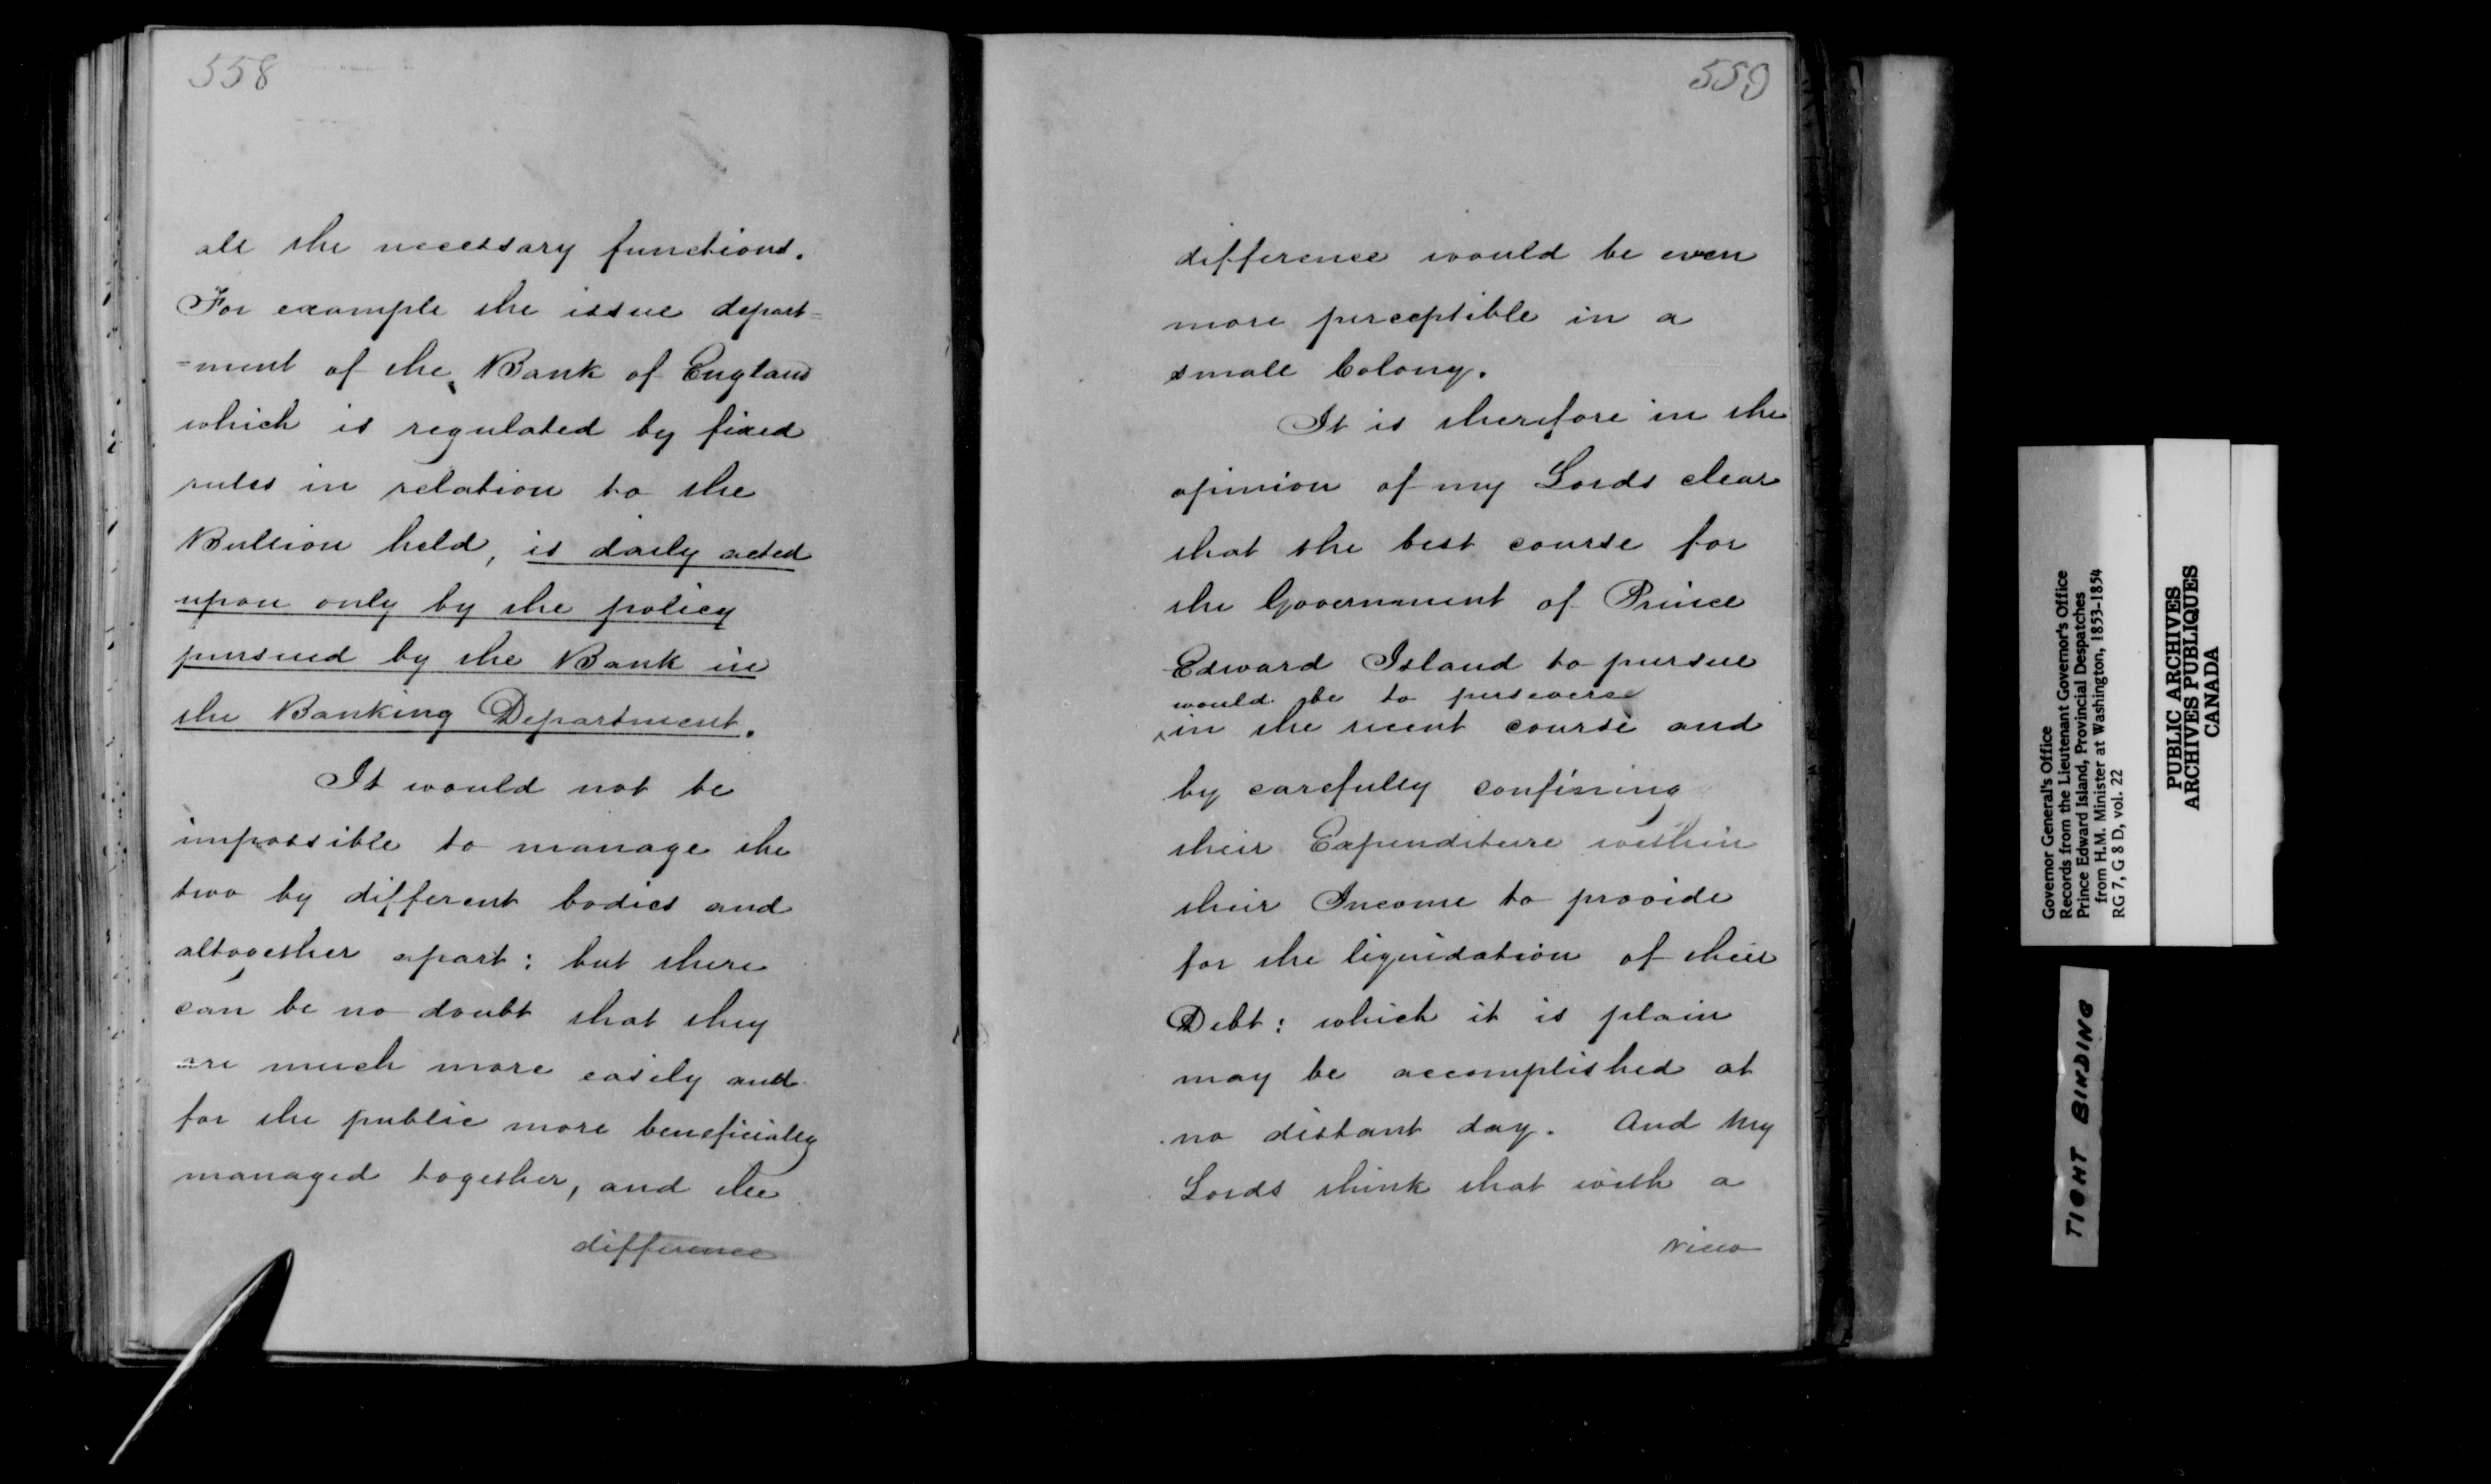 558
all the necessary functions.
For example the issue depart=
=ment of the Bank of England
which is regulated by fixed
rules in relation to the
Bullion held, is daily acted
upon only by the policy
pursued by the Bank in
the Banking Department.
It would not be
impossible to manage the
two by different bodies and
altogether apart: but there
can be no doubt that they
are much more easily and
for the public more beneficially
managed together, and the
difference
559
difference would be even
more perceptible in a
small Colony.
It is therefore in the
opinion of my Lords clear
that the best course for
the Government of Prince
Edward Island to pursue
would be to persevere
in the recent course and
by carefully confining
their Expenditure within
their Income to provide
for the liquidation of their
Debt: which it is plain
may be accomplished at
no distant day. And My
Lords think that with a
view
Governor General's Office
Records from the Lieutenant Governor's Office
Prince Edward Island, Provincial Despatches
from H.M. Minister at Washington, 1853-1854
RG 7, G 8 D, vol. 22
PUBLIC ARCHIVES
ARCHIVES PUBLIQUES
CANADA
TIGHT BINDING